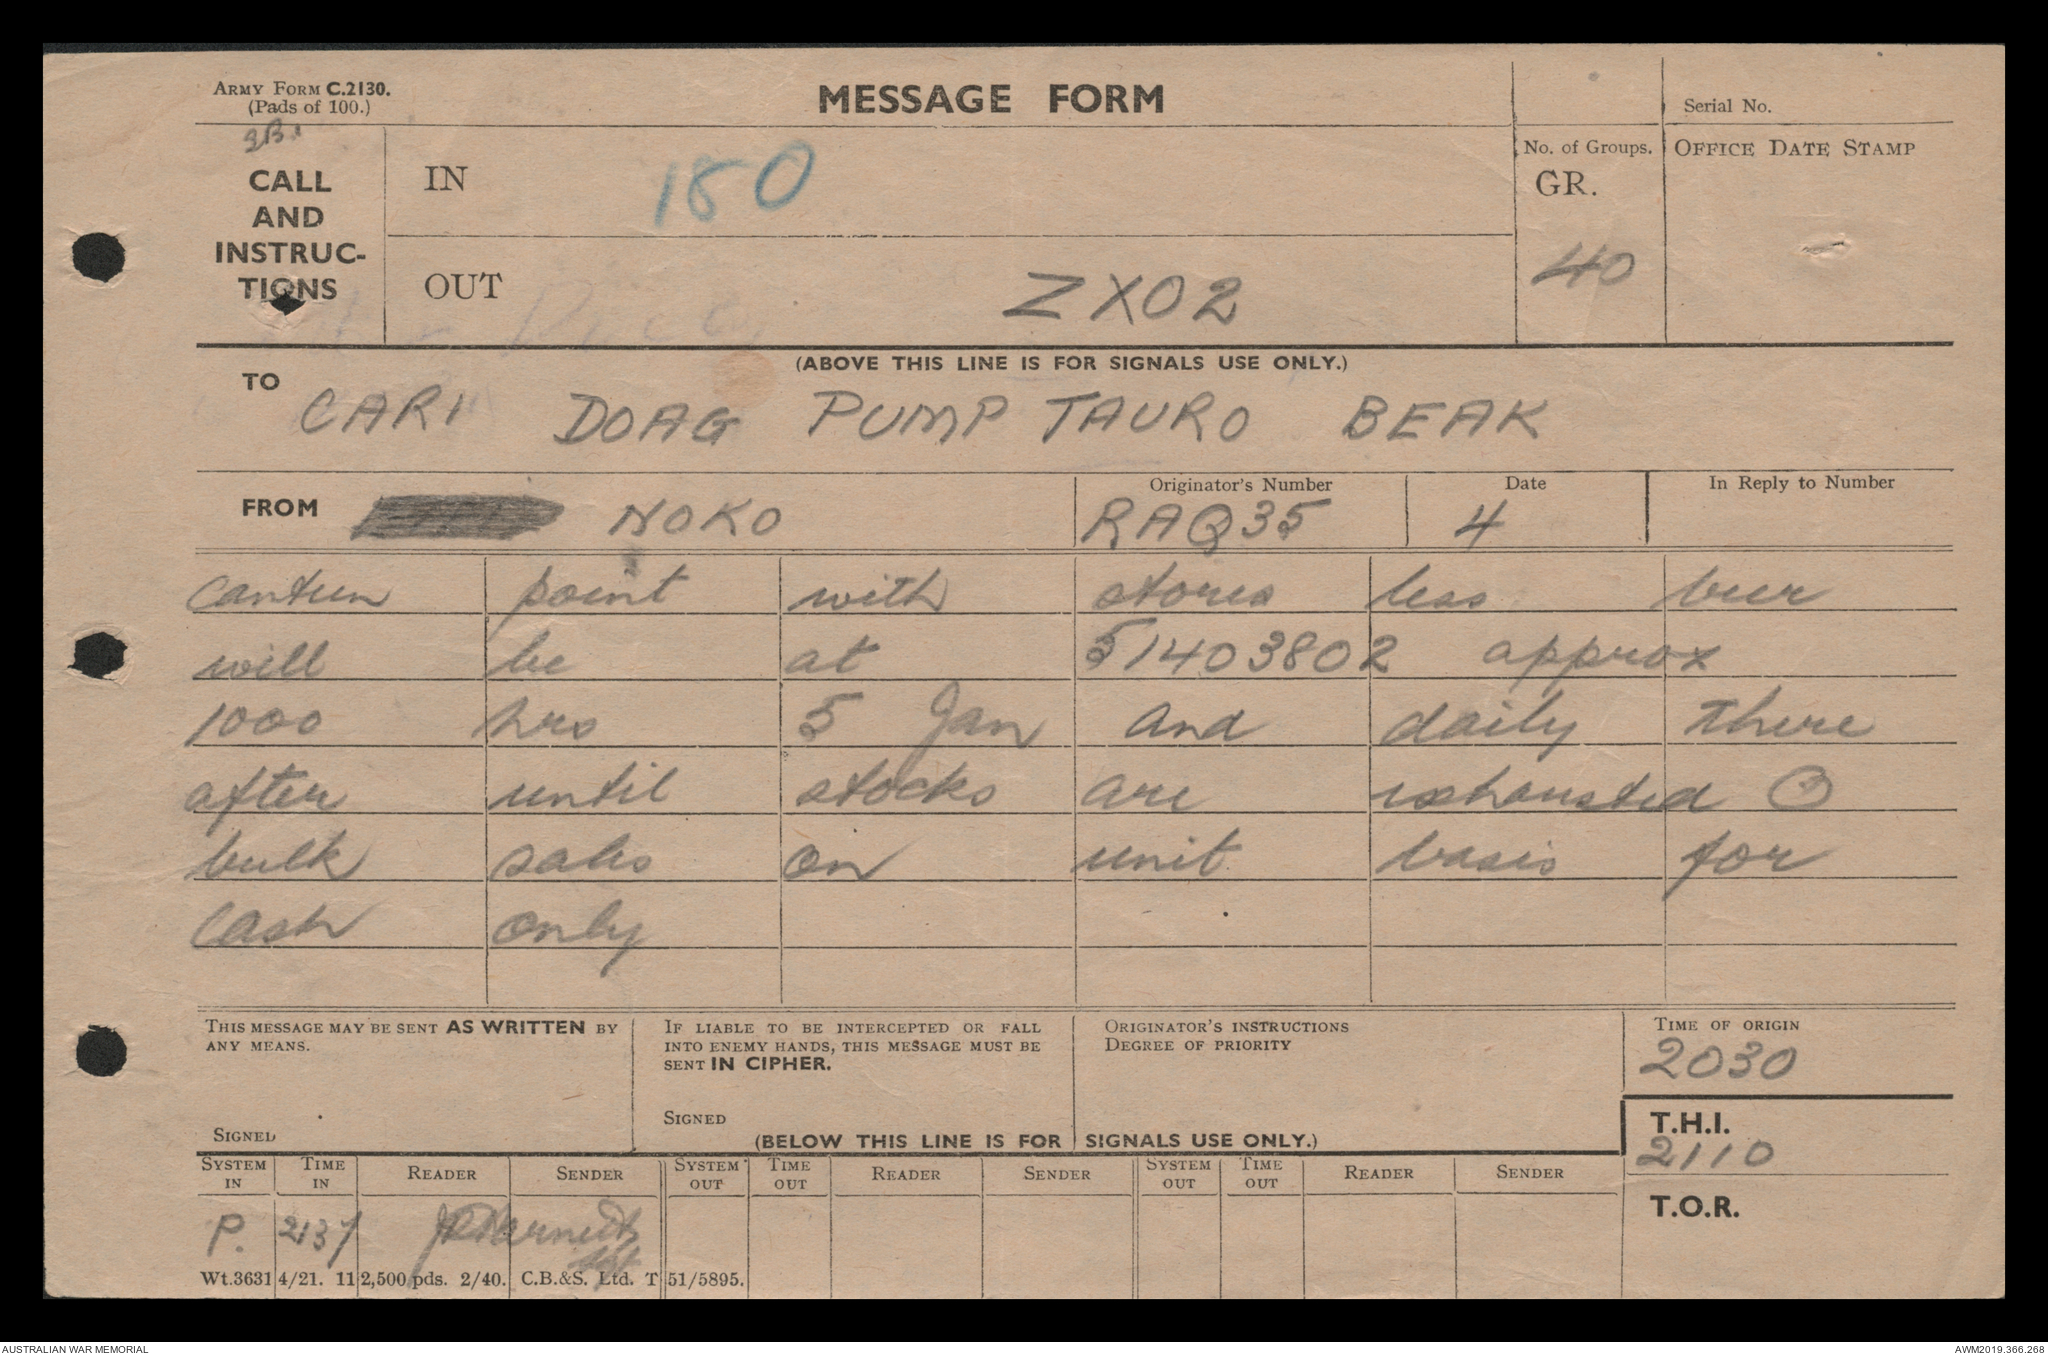 Army Form C.2130.
(Pads of 100.)
MESSAGE FORM
Serial No.
CALL
AND
INSTRUC-
TIONS
IN 180
No. of Groups.
GR.
40
OFFICE DATE STAMP
OUT ZX02
(ABOVE THIS LINE IS FOR SIGNALS USE ONLY.)
TO CARI DOAG PUMP TAURO BEAK
FROM NOKO
Originator's Number
RAQ35
Date
4
In Reply to Number
canteen point with stores less beer
will be at 51403802 approx
1000 hrs 5 Jan and daily there
after until stocks are exhausted
bulk sales on unit basis for
cash only
This message may be sent AS WRITTEN by
any means.
Signed
If liable to be intercepted or fall
into enemy hands, this message must be
sent IN CIPHER.
Signed
Originator's Instructions
Degree of Priority
Time of Origin
2030
T.H.I.
2110
T.O.R.
(BELOW THIS LINE IS FOR SIGNALS USE ONLY.)
System in Time in Reader Sender System out Time out Reader Sender System out Time out Reader Sender
P. 2137
Wt.36314/21. 112,500 pds. 2/40. C.B.&S. Ltd. T51/5895.
AUSTRALIAN WAR MEMORIAL
AWM2019.366.268